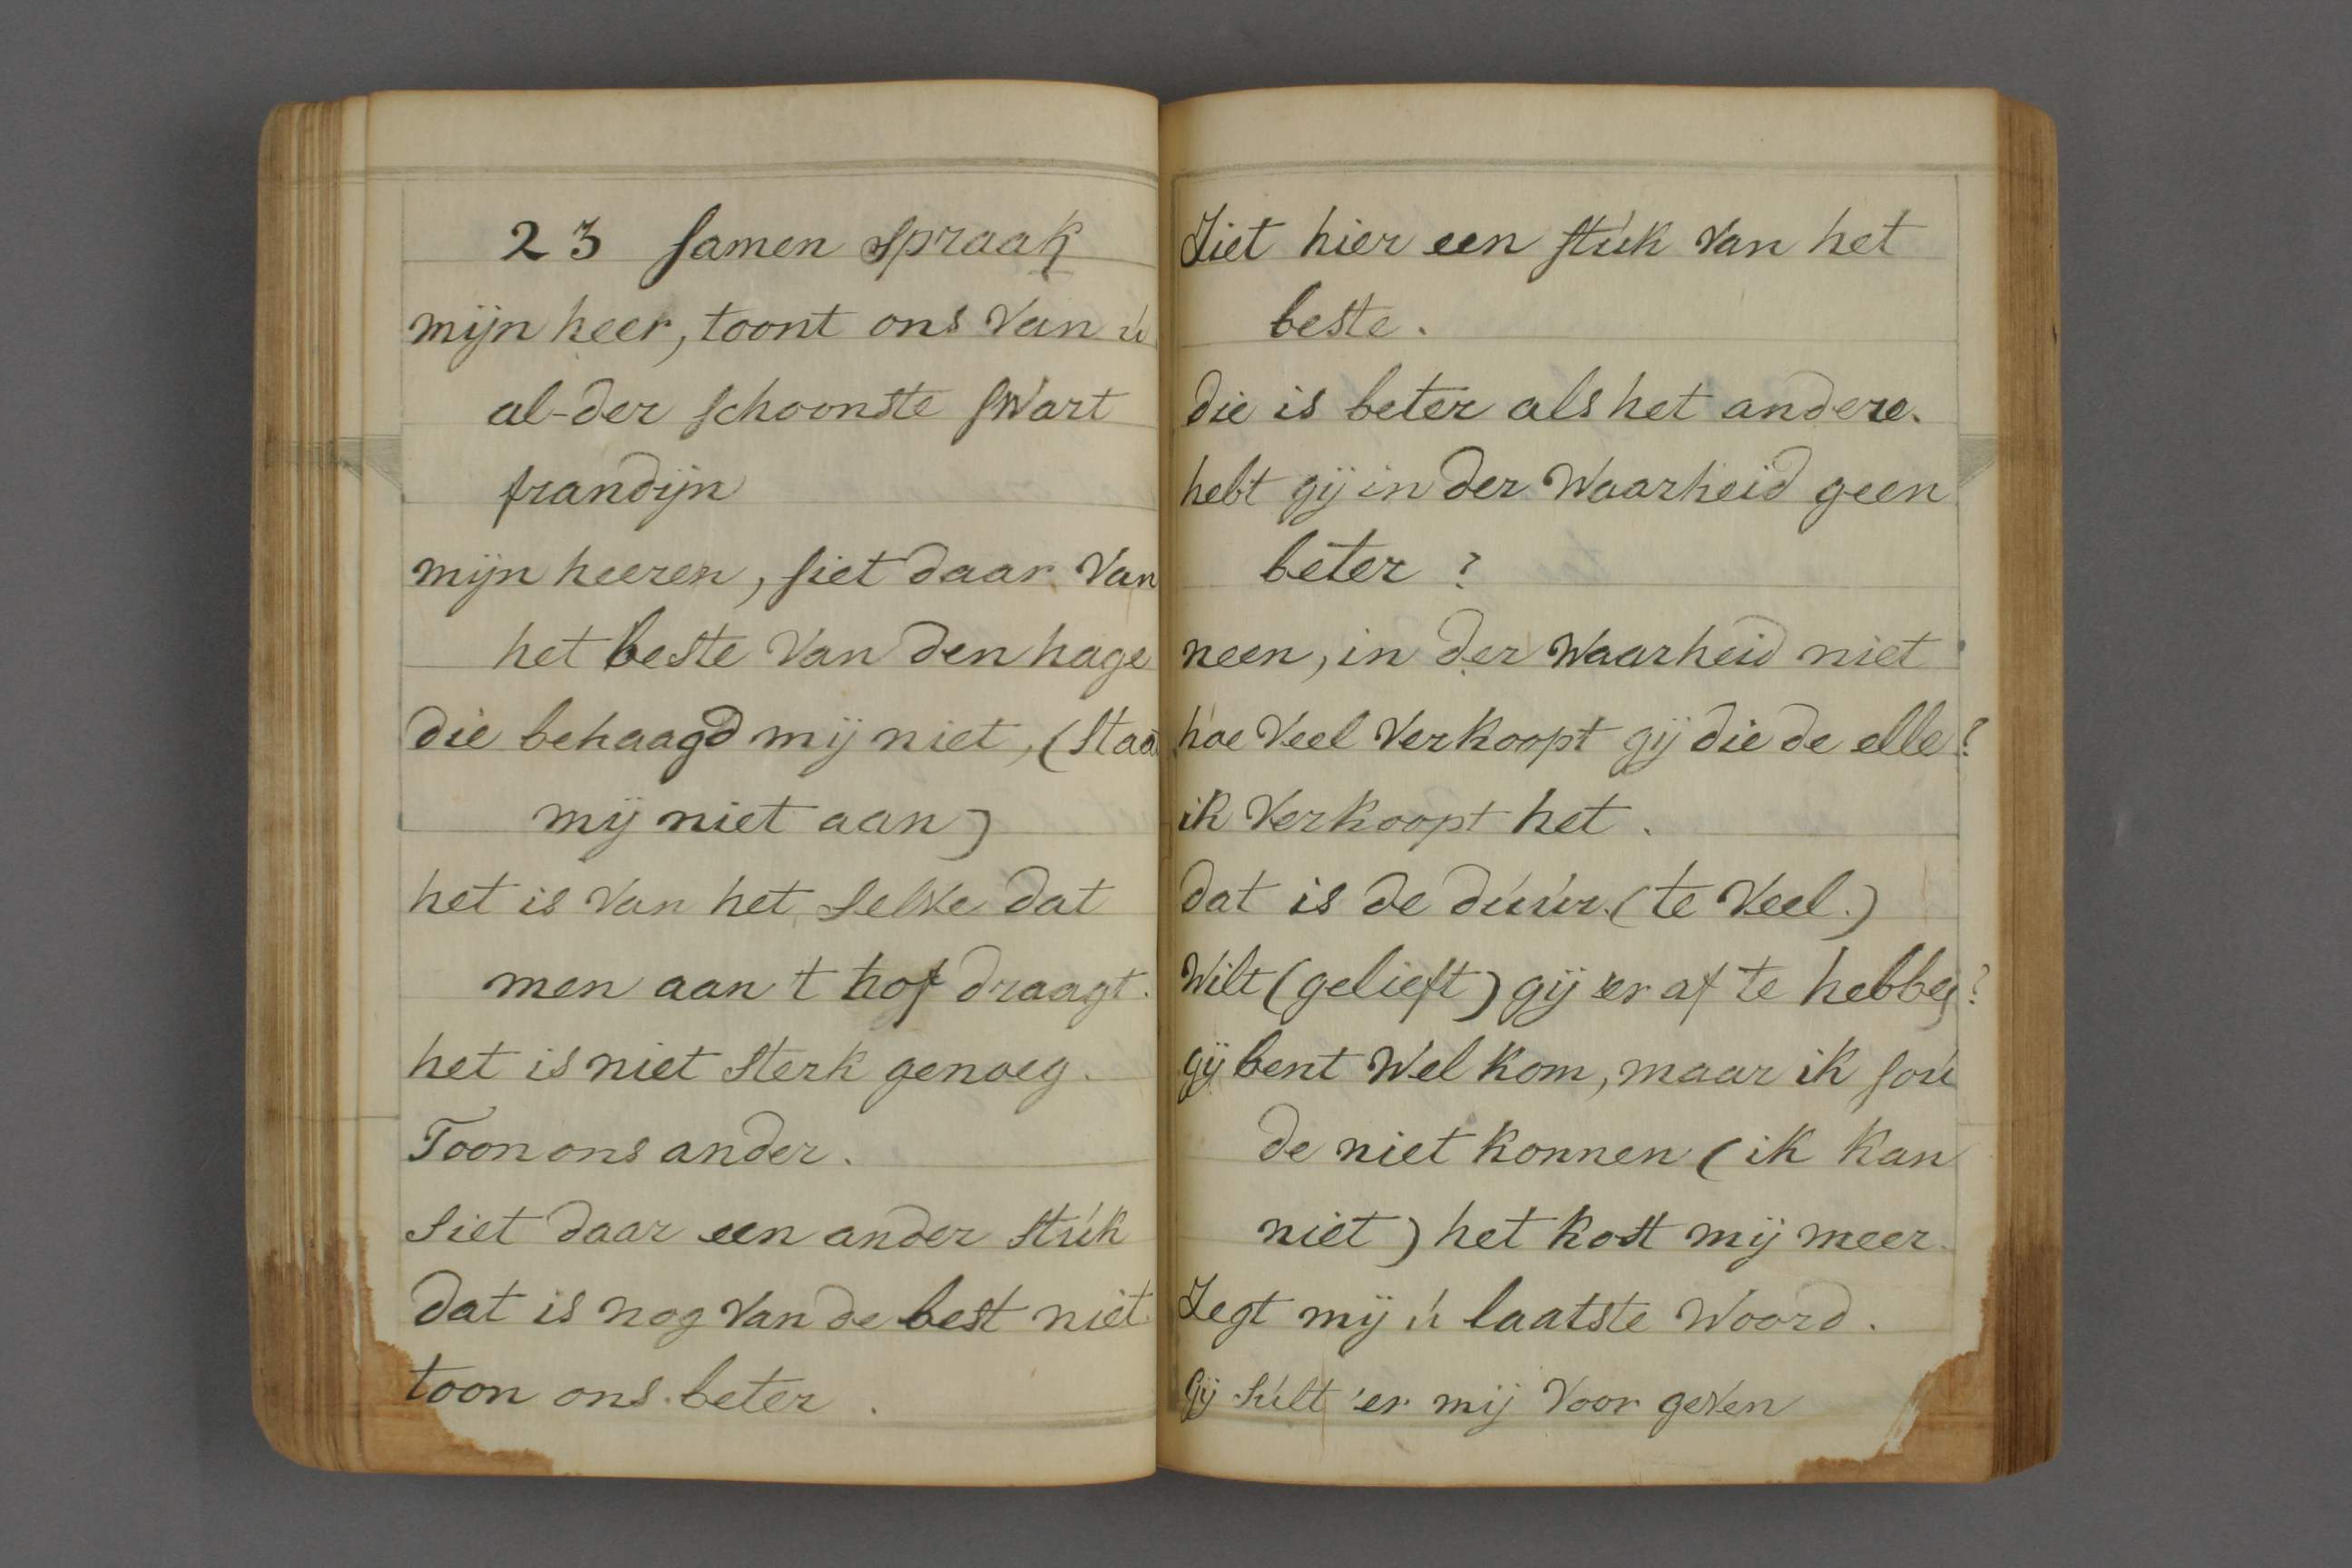 23 samen spraak
mijn heer, toont ons Van ú
al-der schoonste swart
frandijn
mijn heeren, siet daar Van
het beste Van den hage
die behaagd mij niet, (staa
mij niet aan)
het is Van het selve dat
men aan t hof draagt.
het is niet sterk genoeg.
Toon ons ander.
siet daar een ander stúk
dat is nog Van de best niet
toon ons beter.
Ziet hier een stúk Van het
beste.
die is beter als het andere.
hebt gij in der Waarheid geen
beter?
neen, in der Waarheid niet
hoe Veel Verkoopt gij die de elle?
ik Verkoopt het.
dat is de dúúr. (te Veel.)
Wilt (gelieft) gij 'er af te hebben?
gij bent Wel kom, maar ik soú
de niet konnen (ik kan
niet) het kost mij meer.
Zegt mij ú laatste Woord.
Gij súlt 'er mij Voor geven